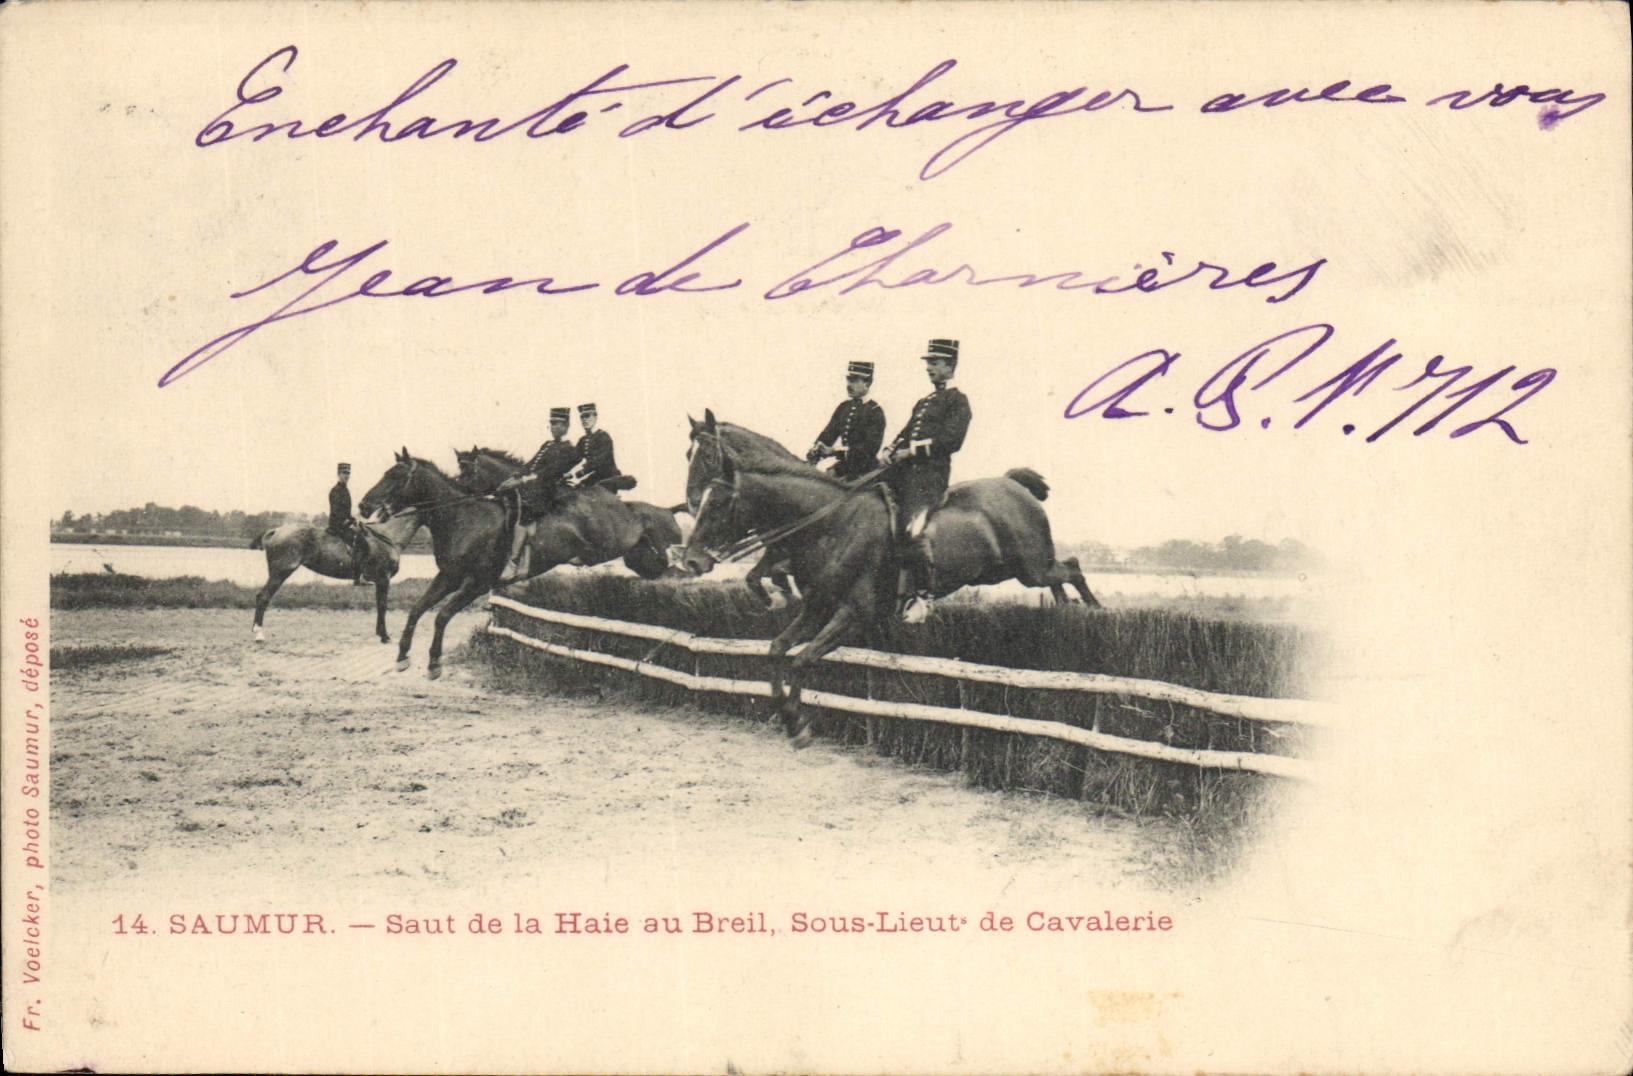 Enchanté d'échanger avec vous
Jean de Charnières
A.G. N. 712
14. SAUMUR. — Saut de la Haie au Breil, Sous-Lieutˢ de Cavalerie
Fr. Voelcker, photo Saumur, déposé